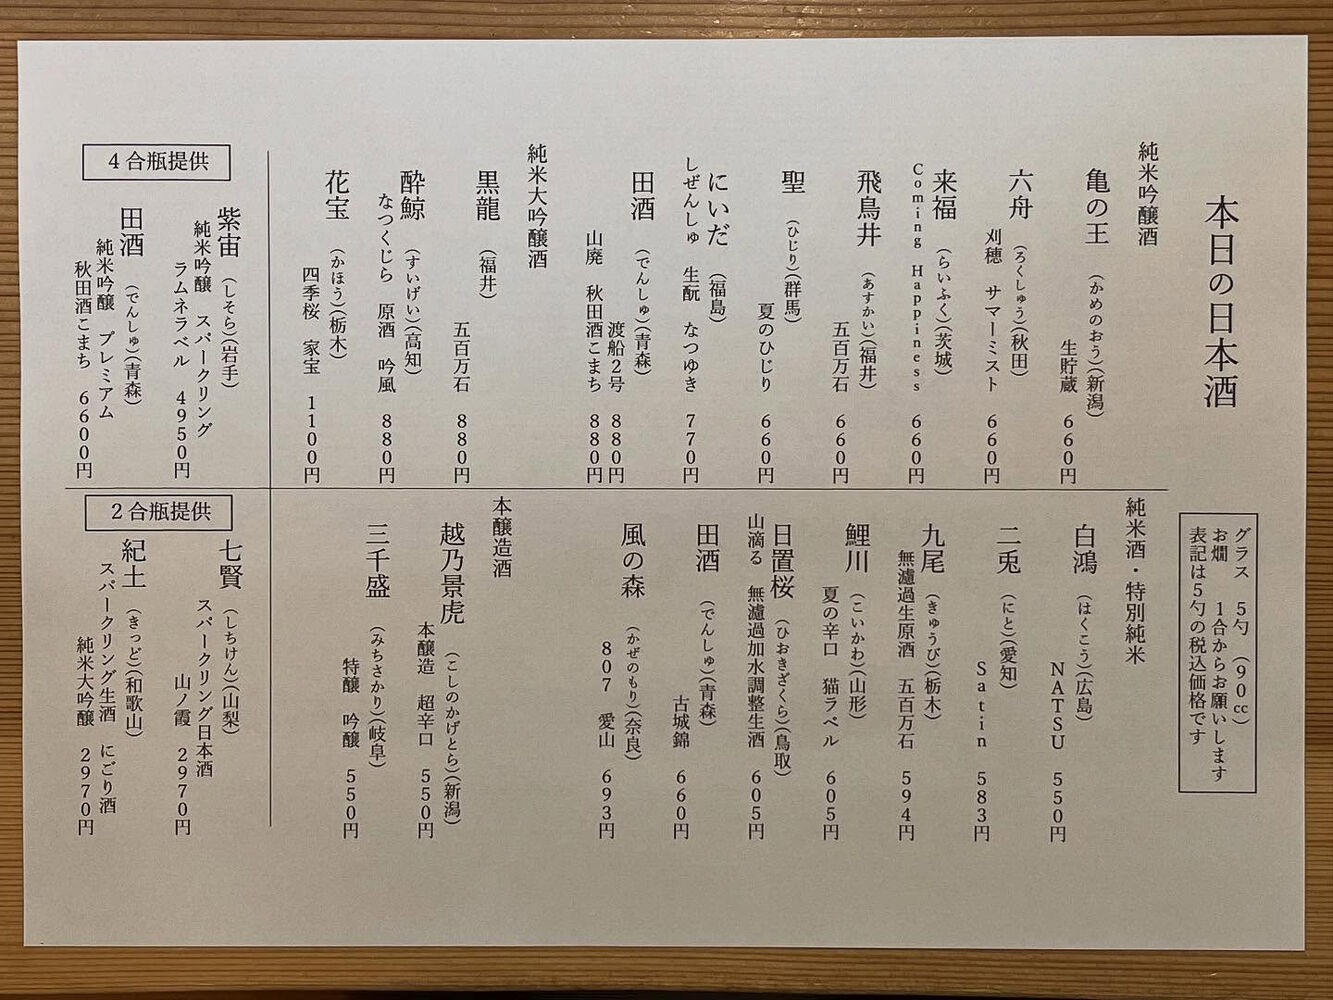 本日の日本酒
グラス 5勺 (90cc)
お燗 1合からお願いします
表記は5勺の税込価格です
純米吟醸酒
亀の王 (かめのおう)(新潟)
生貯蔵 660円
六舟 (ろくしゅう)(秋田)
刈穂 サマーミスト 660円
来福 (らいふく)(茨城)
Coming Happiness 660円
飛鳥井 (あすかい)(福井)
五百万石 660円
聖 (ひじり)(群馬)
夏のひじり 660円
にいだ (福島)
しぜんしゅ 生酛 なつゆき 770円
田酒 (でんしゅ)(青森)
渡船2号 880円
山廃 秋田酒こまち 880円
純米大吟醸酒
黒龍 (福井)
五百万石 880円
酔鯨 (すいげい)(高知)
なつくじら 原酒 吟風 880円
花宝 (かほう)(栃木)
四季桜 家宝 1100円
純米酒・特別純米
白鴻 (はくこう)(広島)
NATSU 550円
二兎 (にと)(愛知)
Satin 583円
九尾 (きゅうび)(栃木)
無濾過生原酒 五百万石 594円
鯉川 (こいかわ)(山形)
夏の辛口 猫ラベル 605円
日置桜 (ひおきざくら)(鳥取)
山滴る 無濾過加水調整生酒 605円
田酒 (でんしゅ)(青森)
古城錦 660円
風の森 (かぜのもり)(奈良)
807 愛山 693円
本醸造酒
越乃景虎 (こしのかげとら)(新潟)
本醸造 超辛口 550円
三千盛 (みちさかり)(岐阜)
特醸 吟醸 550円
4合瓶提供
紫宙 (しそら)(岩手)
純米吟醸 スパークリング
ラムネラベル 4950円
田酒 (でんしゅ)(青森)
純米吟醸 プレミアム
秋田酒こまち 6600円
2合瓶提供
七賢 (しちけん)(山梨)
スパークリング日本酒
山ノ霞 2970円
紀土 (きっど)(和歌山)
スパークリング生酒 にごり酒
純米大吟醸 2970円